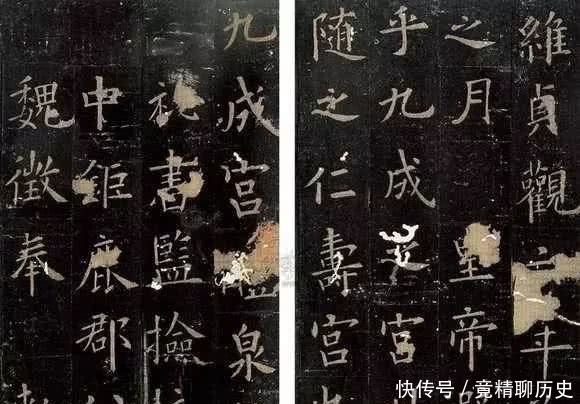 九成宮醴泉
祕書監檢
中鉅鹿郡公
魏徵奉
維貞觀六年
之月皇帝
乎九成之宮
随之仁壽宮也
快传号/竟精聊历史